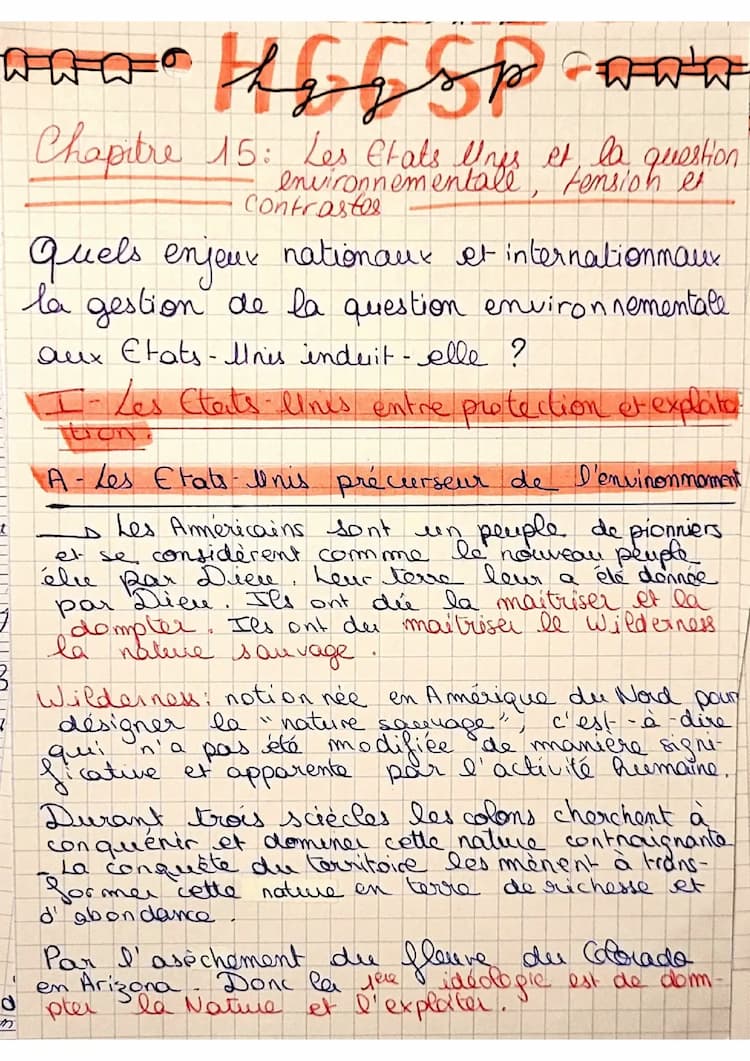 HGGSP
hggsp
Chapitre 15: Les Etats Unis et la question
environnementale, tension et
contrastes
Quels enjeux nationaux et internationnaux
la gestion de la question environnementale
aux Etats-Unis induit-elle ?
I- Les Etats-Unis entre protection et exploita-
tion.
A- Les Etats-Unis précurseur de l'environnement
→ Les Américains sont un peuple de pionniers
et se considèrent comme le nouveau peuple
élu par Dieu. Leur terre leur a été donnée
par Dieu. Ils ont dû la maitriser et la
dompter. Ils ont du maitriser le Wilderness
la nature sauvage.
Wilderness: notion née en Amérique du Nord pour
désigner la "nature sauvage", c'est-à-dire
qui n'a pas été modifiée de manière signi-
ficative et apparente par l'activité humaine.
Durant trois sciècles les colons cherchent à
conquérir et dominer cette nature contraignante
- La conquête du territoire les mènent à trans-
former cette nature en terre de richesse et
d'abondance.
Par l'asèchement du fleuve du Colorado
en Arizona. Donc la 1ere idéologie est de dom-
pter la Nature et l'exploiter.